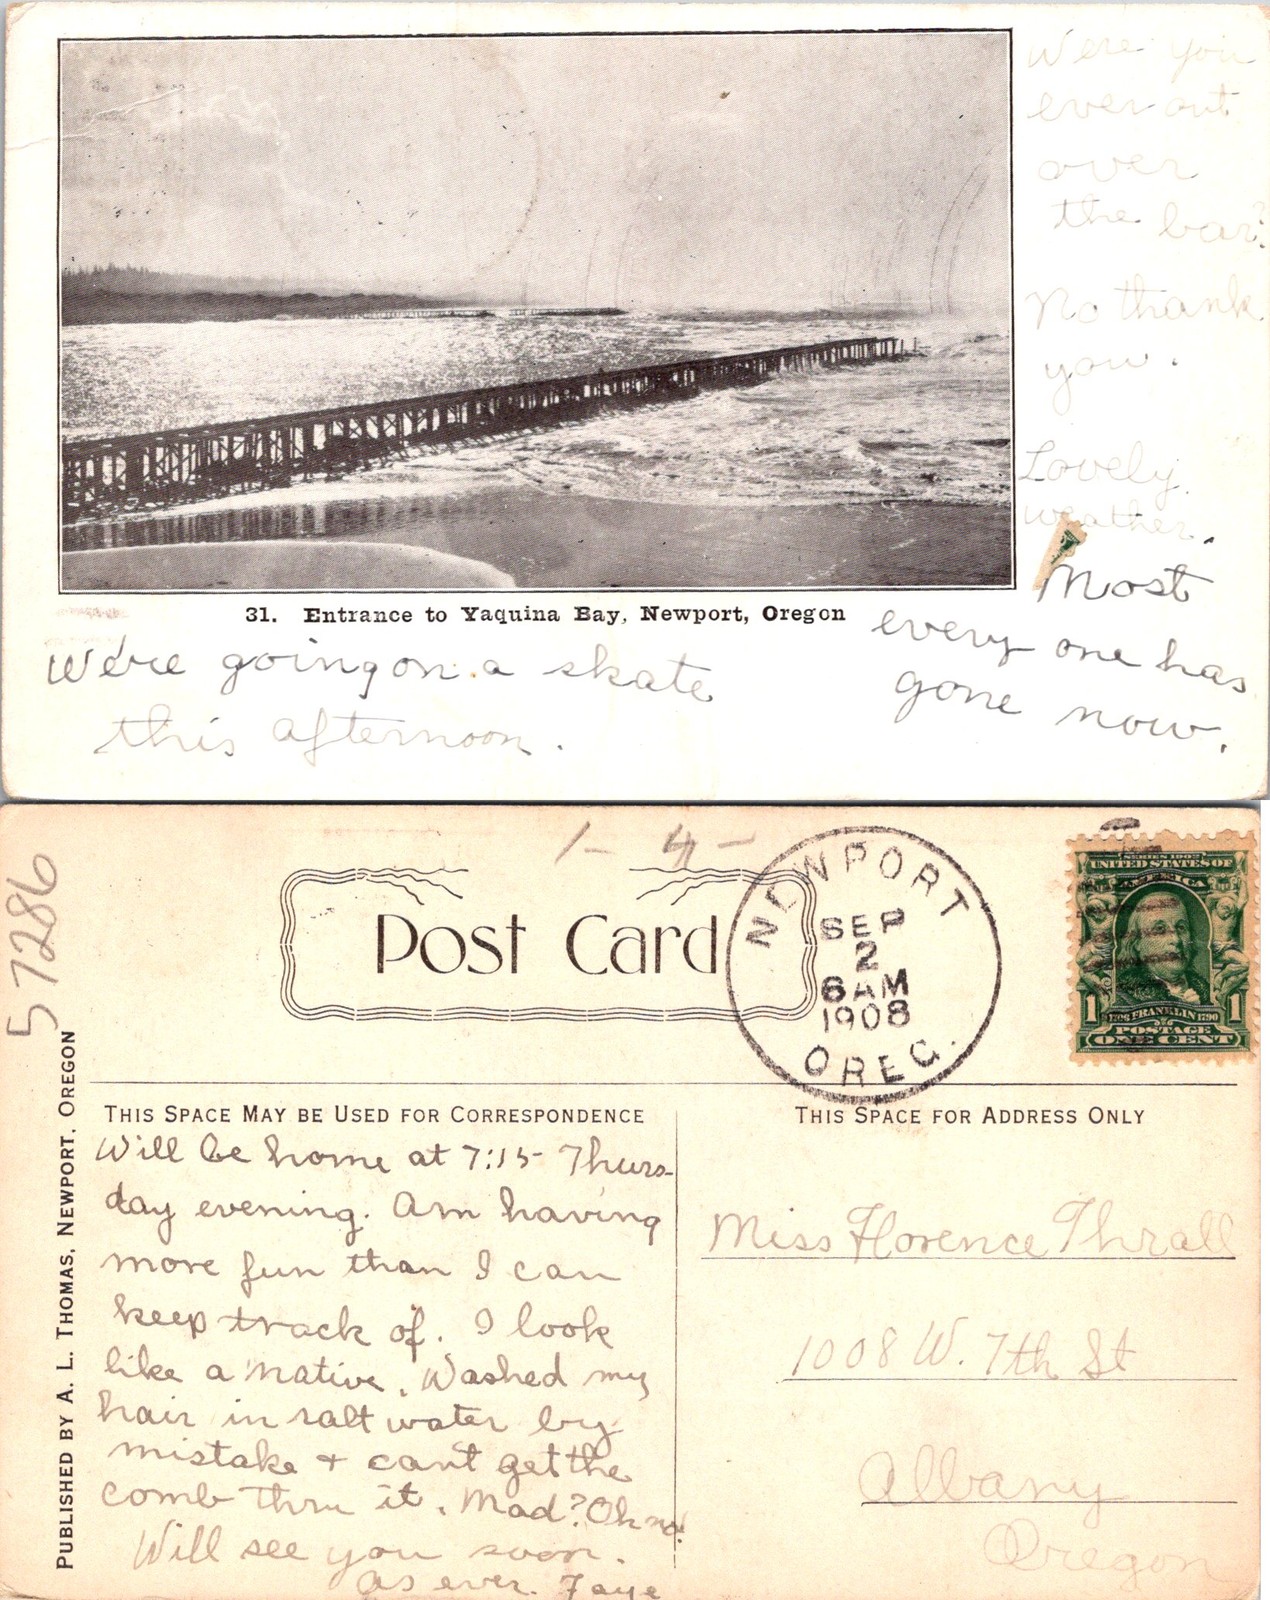 Were you
ever out
over
the bar?
No thank
you.
Lovely
weather.
Most
every one has
gone now.
31. Entrance to Yaquina Bay, Newport, Oregon
We're going on a skate
this afternoon.
1- 4-
57286
Post Card
NEWPORT
SEP
2
6 AM
1908
OREG.
SERIES 1902
UNITED STATES OF
AMERICA
1706 FRANKLIN 1790
1 1
POSTAGE
ONE CENT
PUBLISHED BY A. L. THOMAS, NEWPORT, OREGON
THIS SPACE MAY BE USED FOR CORRESPONDENCE
Will be home at 7:15 Thurs-
day evening. Am having
more fun than I can
keep track of. I look
like a native. Washed my
hair in salt water by
mistake + can't get the
comb thru it. Mad? Oh no!
Will see you soon.
As ever. Faye
THIS SPACE FOR ADDRESS ONLY
Miss Florence Thrall
1008 W. 7th St
Albany
Oregon